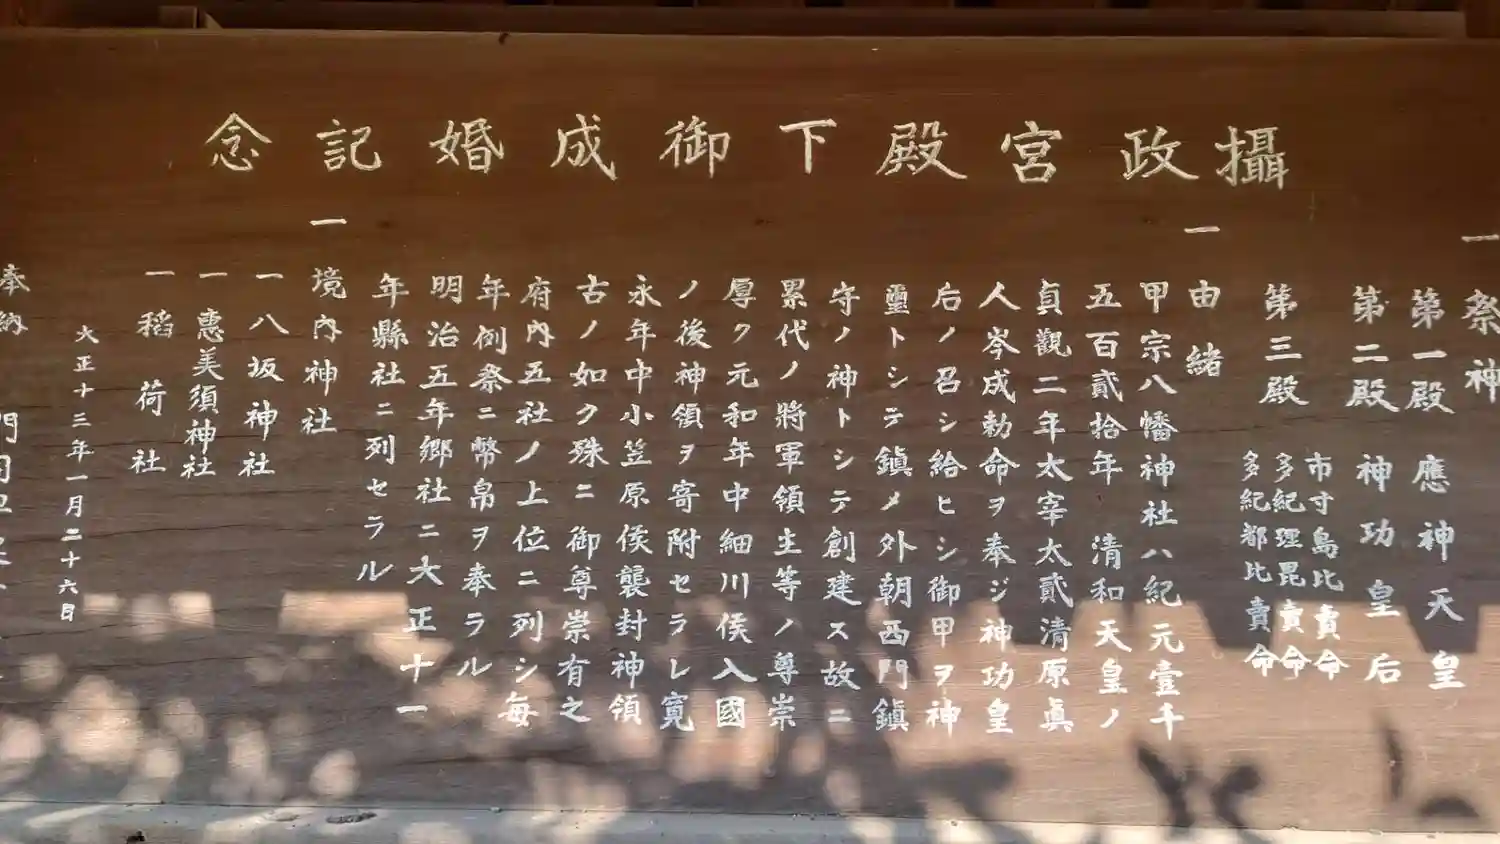 攝政宮殿下御成婚記念
一 祭神
第一殿 應神天皇
第二殿 神功皇后
第三殿 市寸島比賣命
多紀理毘賣命
多紀都比賣命
一 由緒
甲宗八幡神社ハ紀元壹千
五百貳拾年 清和天皇ノ
貞觀二年太宰太貳清原眞
人岑成勅命ヲ奉ジ神功皇
后ノ召シ給ヒシ御甲ヲ神
靈トシテ鎭メ外朝西門鎭
守ノ神トシテ創建ス故ニ
累代ノ將軍領主等ノ尊崇
厚ク元和年中細川侯入國
ノ後神領ヲ寄附セラレ寛
永年中小笠原侯襲封神領
古ノ如ク殊ニ御尊崇有之
府內五社ノ上位ニ列シ每
年例祭ニ幣帛ヲ奉ラル
明治五年鄉社ニ大正十一
年縣社ニ列セラル
一 境內神社
一 八坂神社
一 惠美須神社
一 稻荷社
大正十三年一月二十六日
奉納 門司